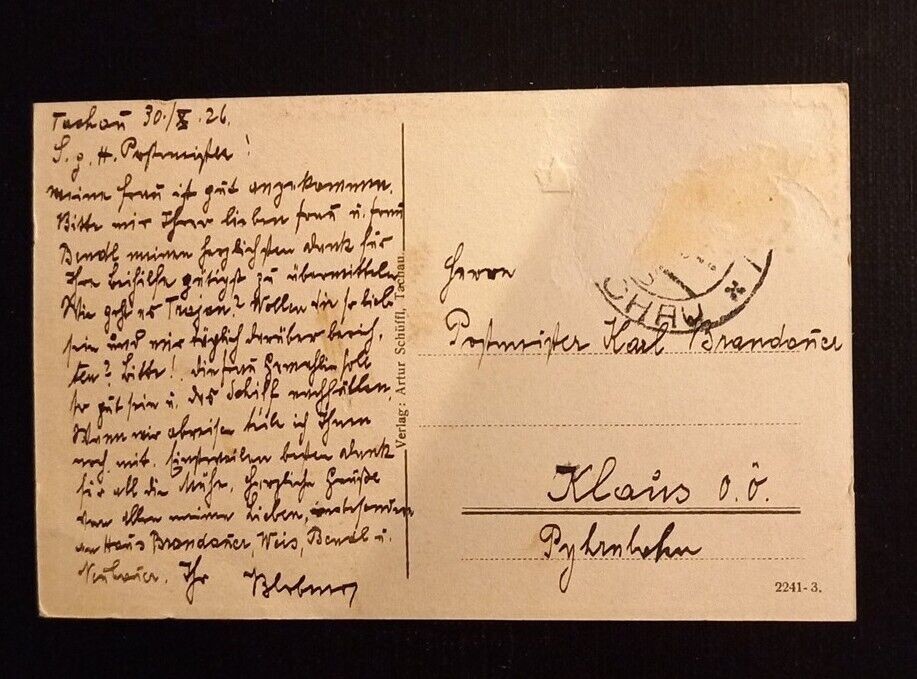 Tachau 30./X. 26.
S. g. H. Postmeister!
Meine Frau ist gut angekommen.
Bitte mir Ihrer lieben Frau u. Frau
Bendl meinen herzlichsten Dank für
Ihre Beihilfe gütigst zu übermitteln.
Wie geht es Trojan? Wollen Sie so lieb
sein und mir täglich darüber berich-
ten? Bitte! Die Frau Gemahlin soll
so gut sein u. das Schiff nachfüllen.
Wann wir abreisen teile ich Ihnen
noch mit. Einstweilen besten Dank
für all die Mühe. Herzliche Grüße
von allen meiner Lieben, insbesondere
an Haus Brandauer, Weis, Bendl u.
Neubauer. Ihr
Verlag: Artur Schüffl, Tachau.
Herrn
Postmeister Karl Brandauer
Klaus O. Ö.
Pyhrnbahn
2241-3.